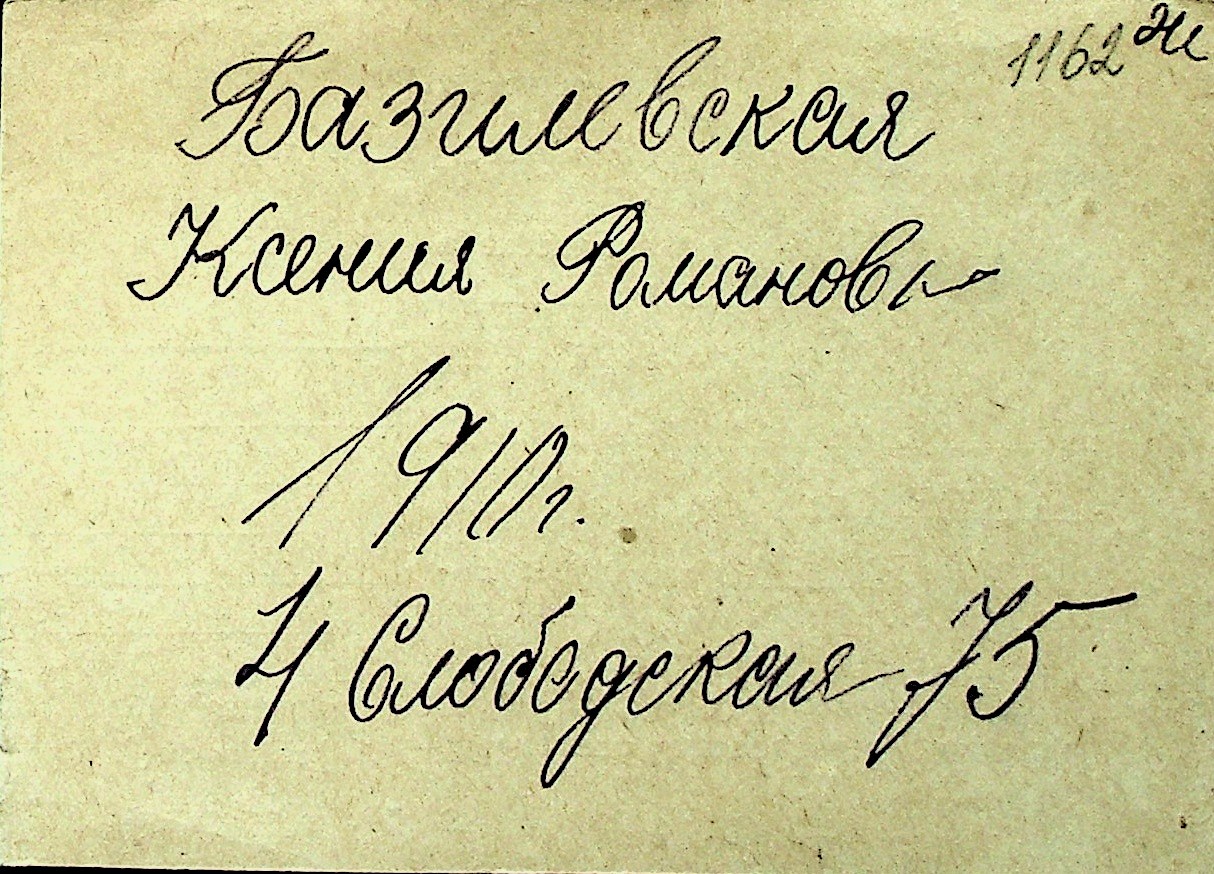 1162 Ж
Базилевская
Ксения Романовн
1910г.
4 Слободская 75